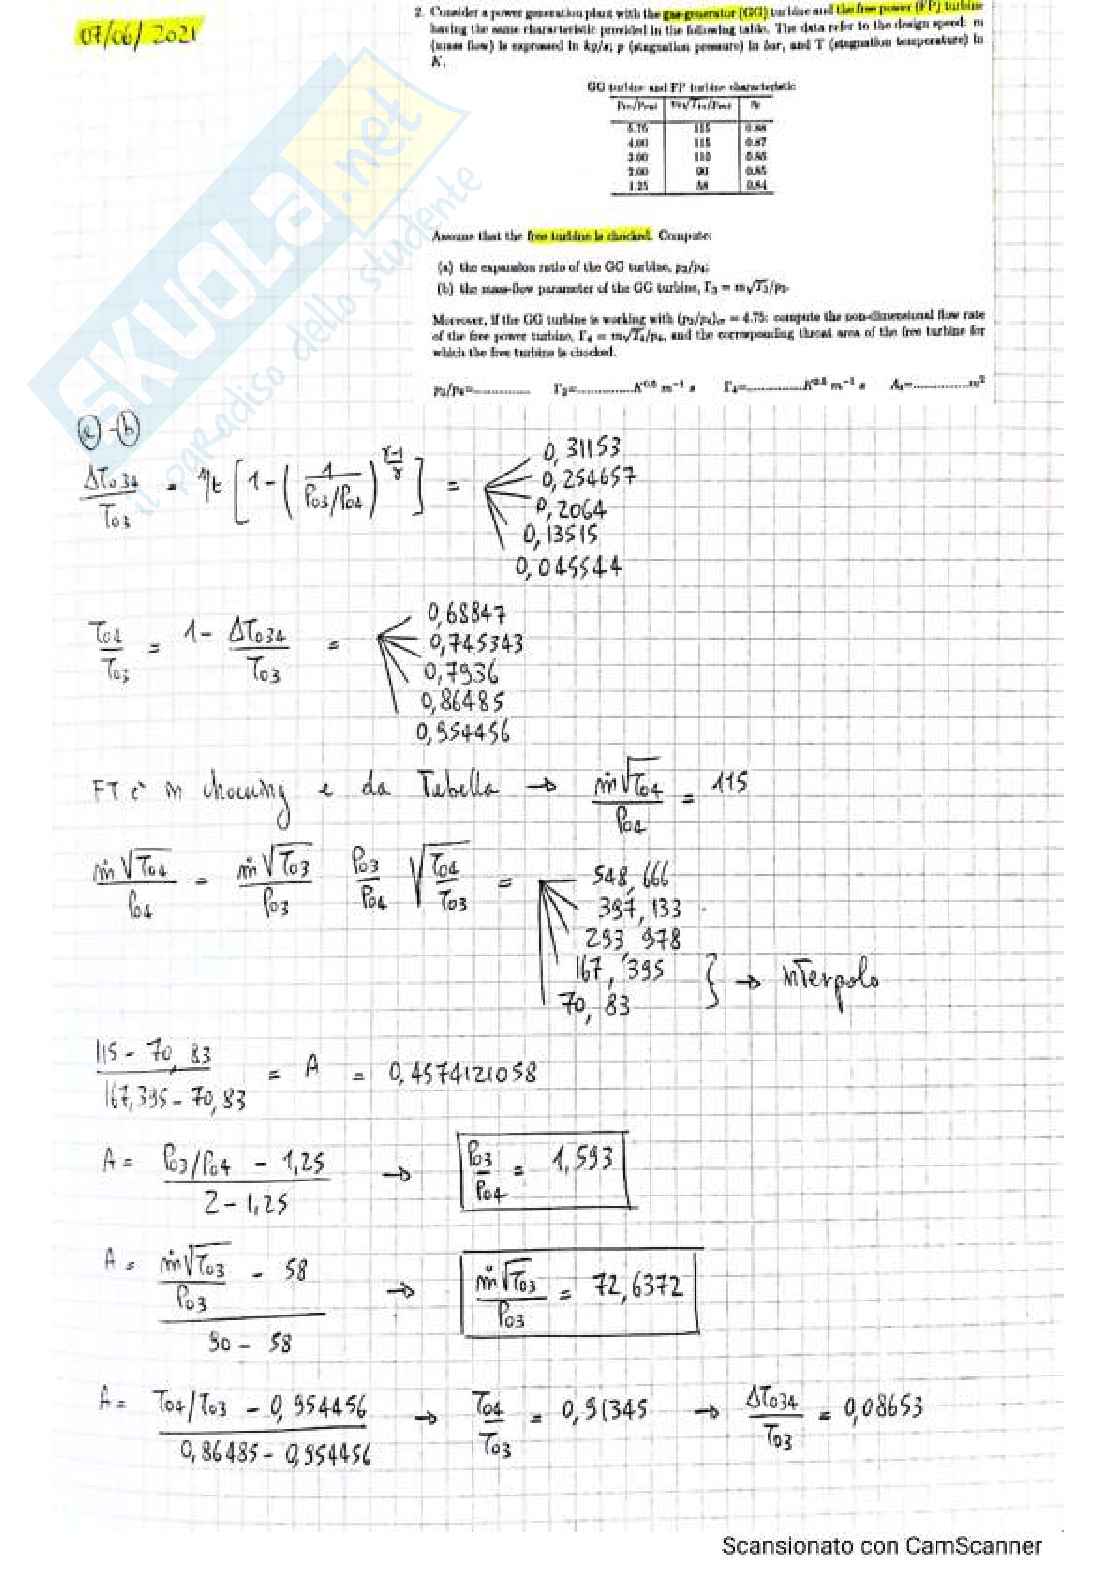 07/06/2021
2. Consider a power generation plant with the gas-generator (GG) turbine and the free power (FP) turbine
having the same characteristic provided in the following table. The data refer to the design speed: m
(mass flow) is expressed in kg/s; p (stagnation pressure) in bar, and T (stagnation temperature) in
K.
GG turbine and FP turbine characteristic
115 0.88
4.00 115 0.87
3.00 110 0.86
2.00 90 0.85
1.25 58 0.84
Assume that the free turbine is chocked. Compute:
(a) the expansion ratio of the GG turbine, p₃/p₄;
(b) the mass-flow parameter of the GG turbine, Γ₃ = m√T₃/p₃.
Moreover, if the GG turbine is working with (p₃/p₄)cr = 4.75: compute the non-dimensional flow rate
of the free power turbine, Γ₄ = m√T₄/p₄, and the corresponding throat area of the free turbine for
which the free turbine is chocked.
p₃/p₄=.............. Γ₃=..............K⁰·⁵ m⁻¹ s Γ₄=..............K⁰·⁵ m⁻¹ s A₄=..............m²
SKUOLA.net
il paradiso dello studente
(a)-(b)
ΔT034/T03 = ηt [1-(1/(P03/P04))^((γ-1)/γ)] =
0,31153
0,254657
0,2064
0,13515
0,045544
T04/T03 = 1 - ΔT034/T03 =
0,68847
0,745343
0,7936
0,86485
0,954456
FT è in chocking e da Tabella → ṁ√T04/P04 = 115
ṁ√T04/P04 = ṁ√T03/P03 P03/P04 √(T04/T03) =
548,666
397,133
293,978
167,395
70,83
} → interpolo
(115 - 70,83)/(167,395 - 70,83) = A = 0,4574121058
A = (P03/P04 - 1,25)/(2 - 1,25) → P03/P04 = 1,593
A = (ṁ√T03/P03 - 58)/(90 - 58) → ṁ√T03/P03 = 72,6372
A = (T04/T03 - 0,954456)/(0,86485 - 0,954456) → T04/T03 = 0,91345 → ΔT034/T03 = 0,08653
Scansionato con CamScanner